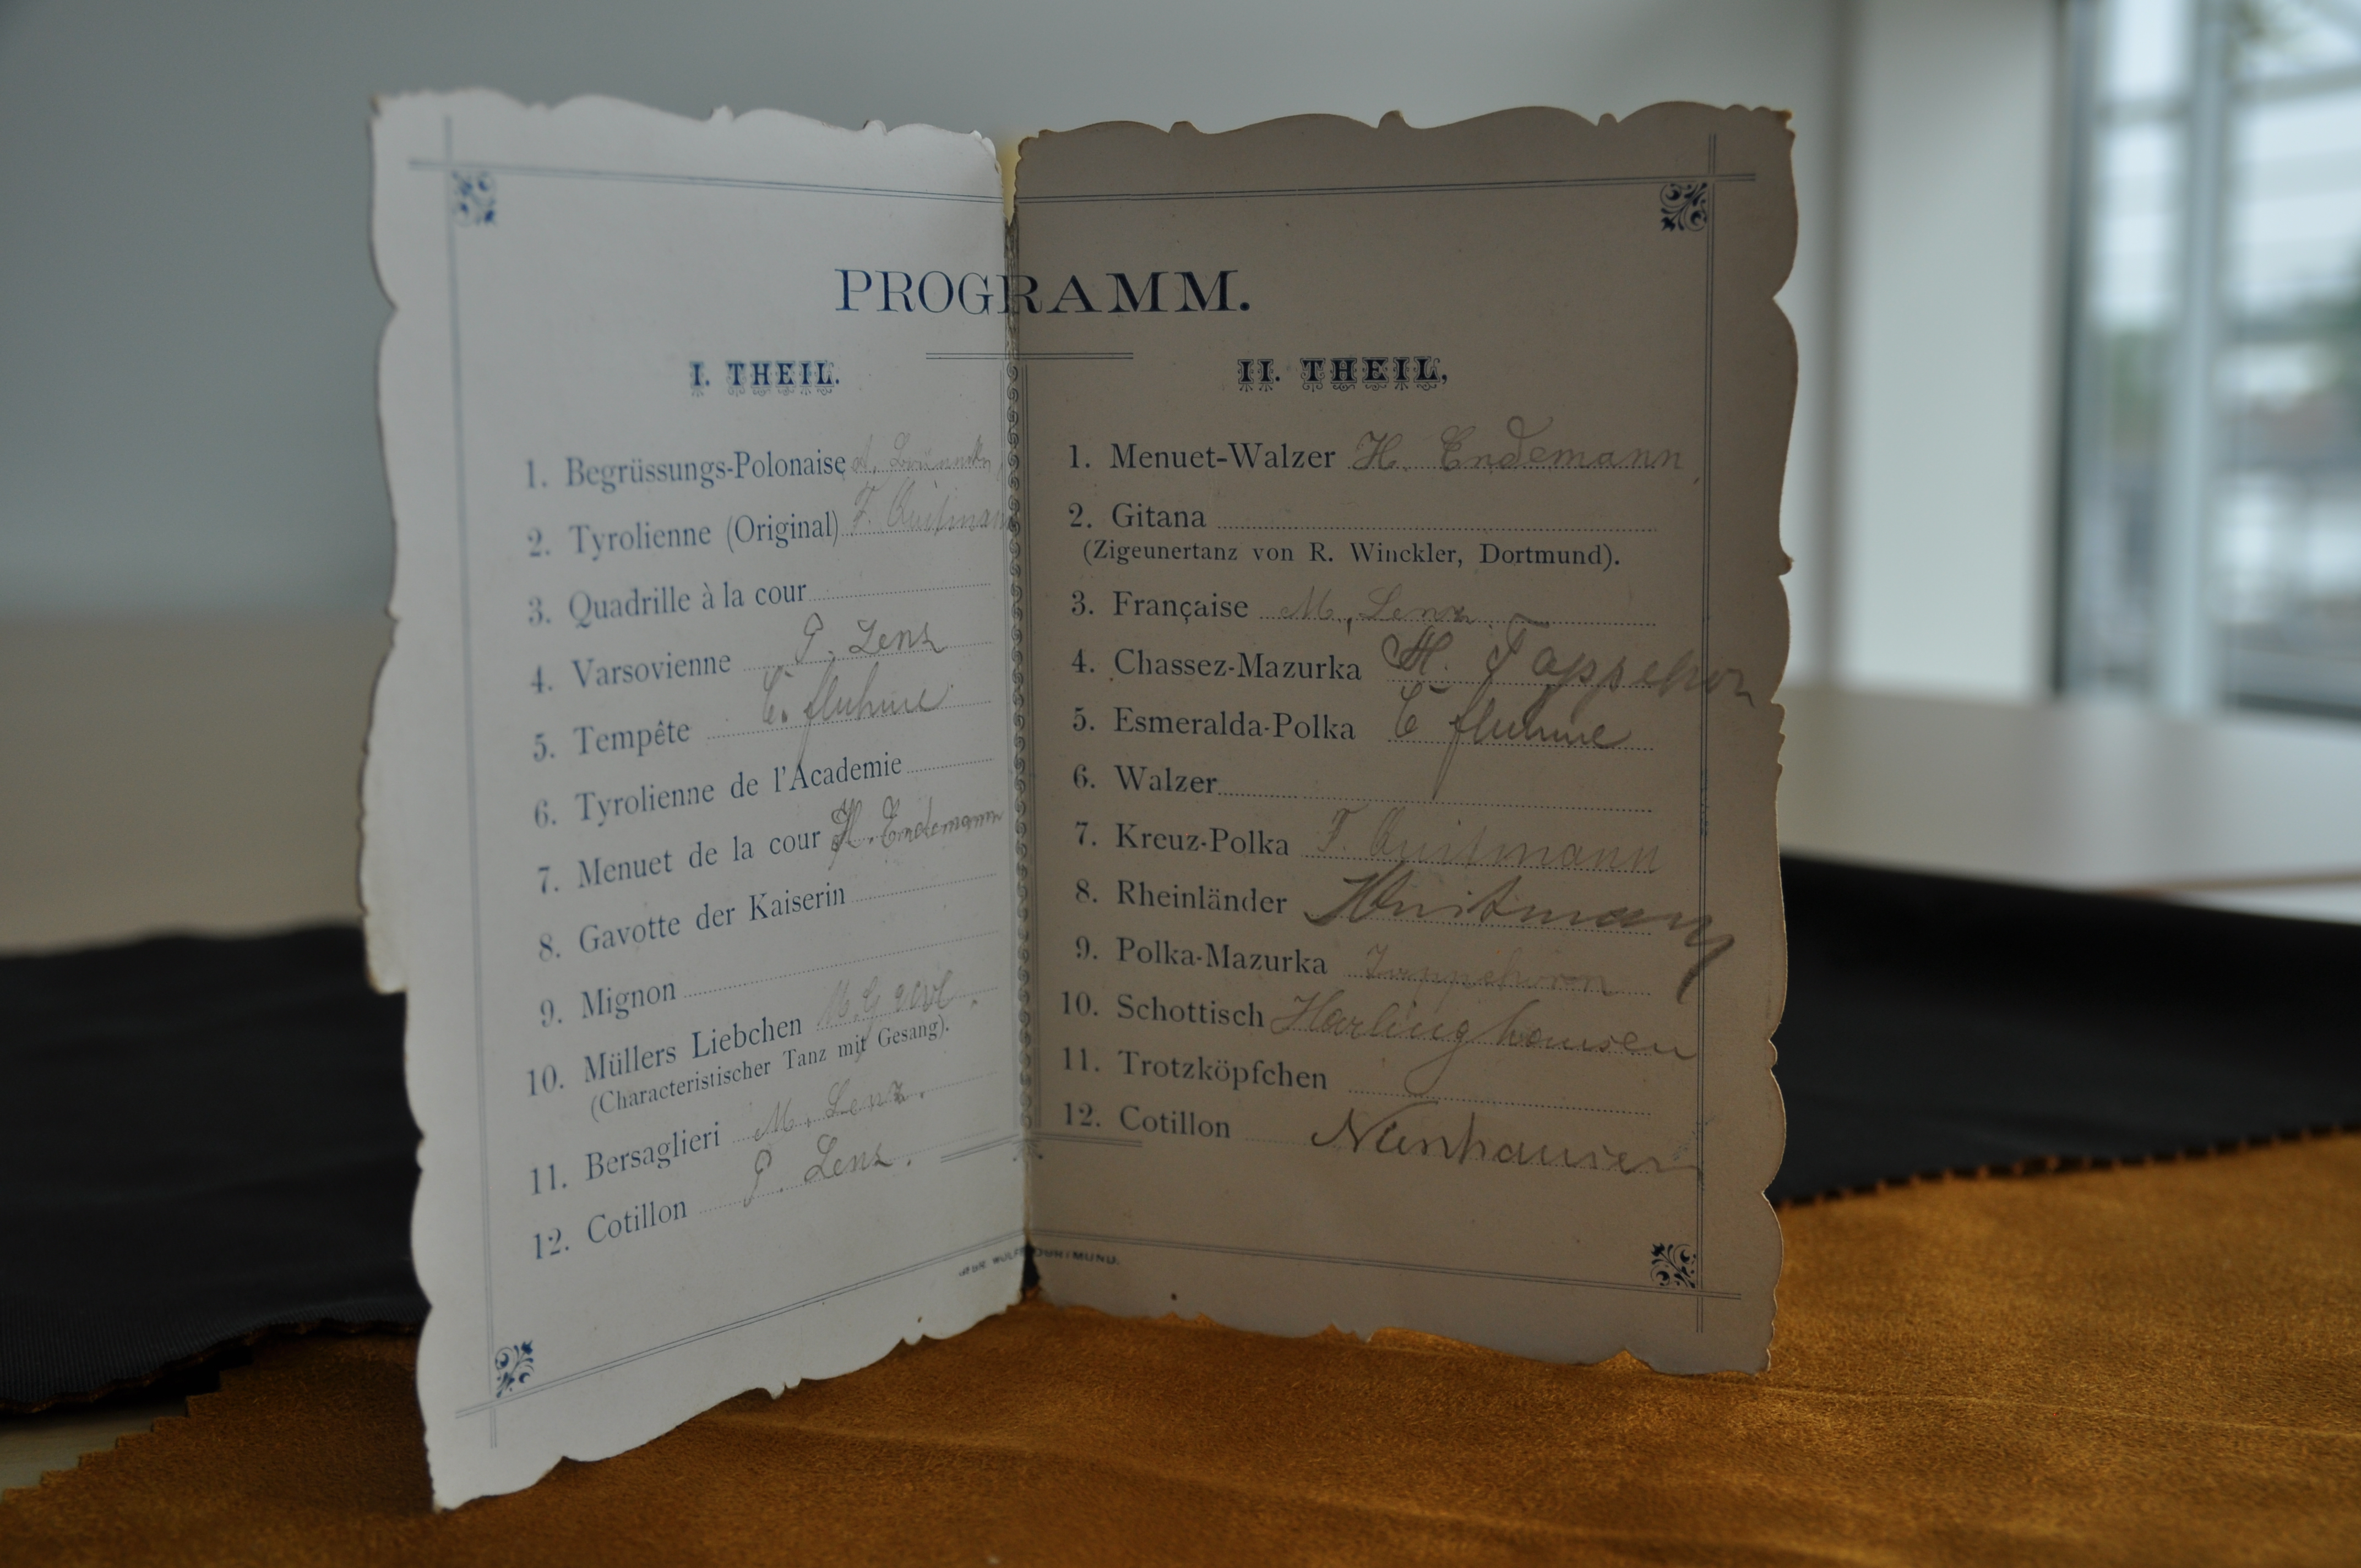 PROGRAMM.
I. THEIL.
1. Begrüssungs-Polonaise A.
2. Tyrolienne (Original) F. Quitmann
3. Quadrille à la cour
4. Varsovienne P. Lenz
5. Tempête C. fluhme
6. Tyrolienne de l'Academie
7. Menuet de la cour H. Endemann
8. Gavotte der Kaiserin
9. Mignon
10. Müllers Liebchen M.
(Characteristischer Tanz mit Gesang).
11. Bersaglieri M. Lenz.
12. Cotillon P. Lenz.
II. THEIL,
1. Menuet-Walzer H. Endemann
2. Gitana
(Zigeunertanz von R. Winckler, Dortmund).
3. Française M. Lenz.
4. Chassez-Mazurka H. Tappehorn
5. Esmeralda-Polka C fluhme
6. Walzer
7. Kreuz-Polka F. Quitmann
8. Rheinländer
9. Polka-Mazurka Tappehorn
10. Schottisch Harlinghausen
11. Trotzköpfchen
12. Cotillon
DORTMUND.